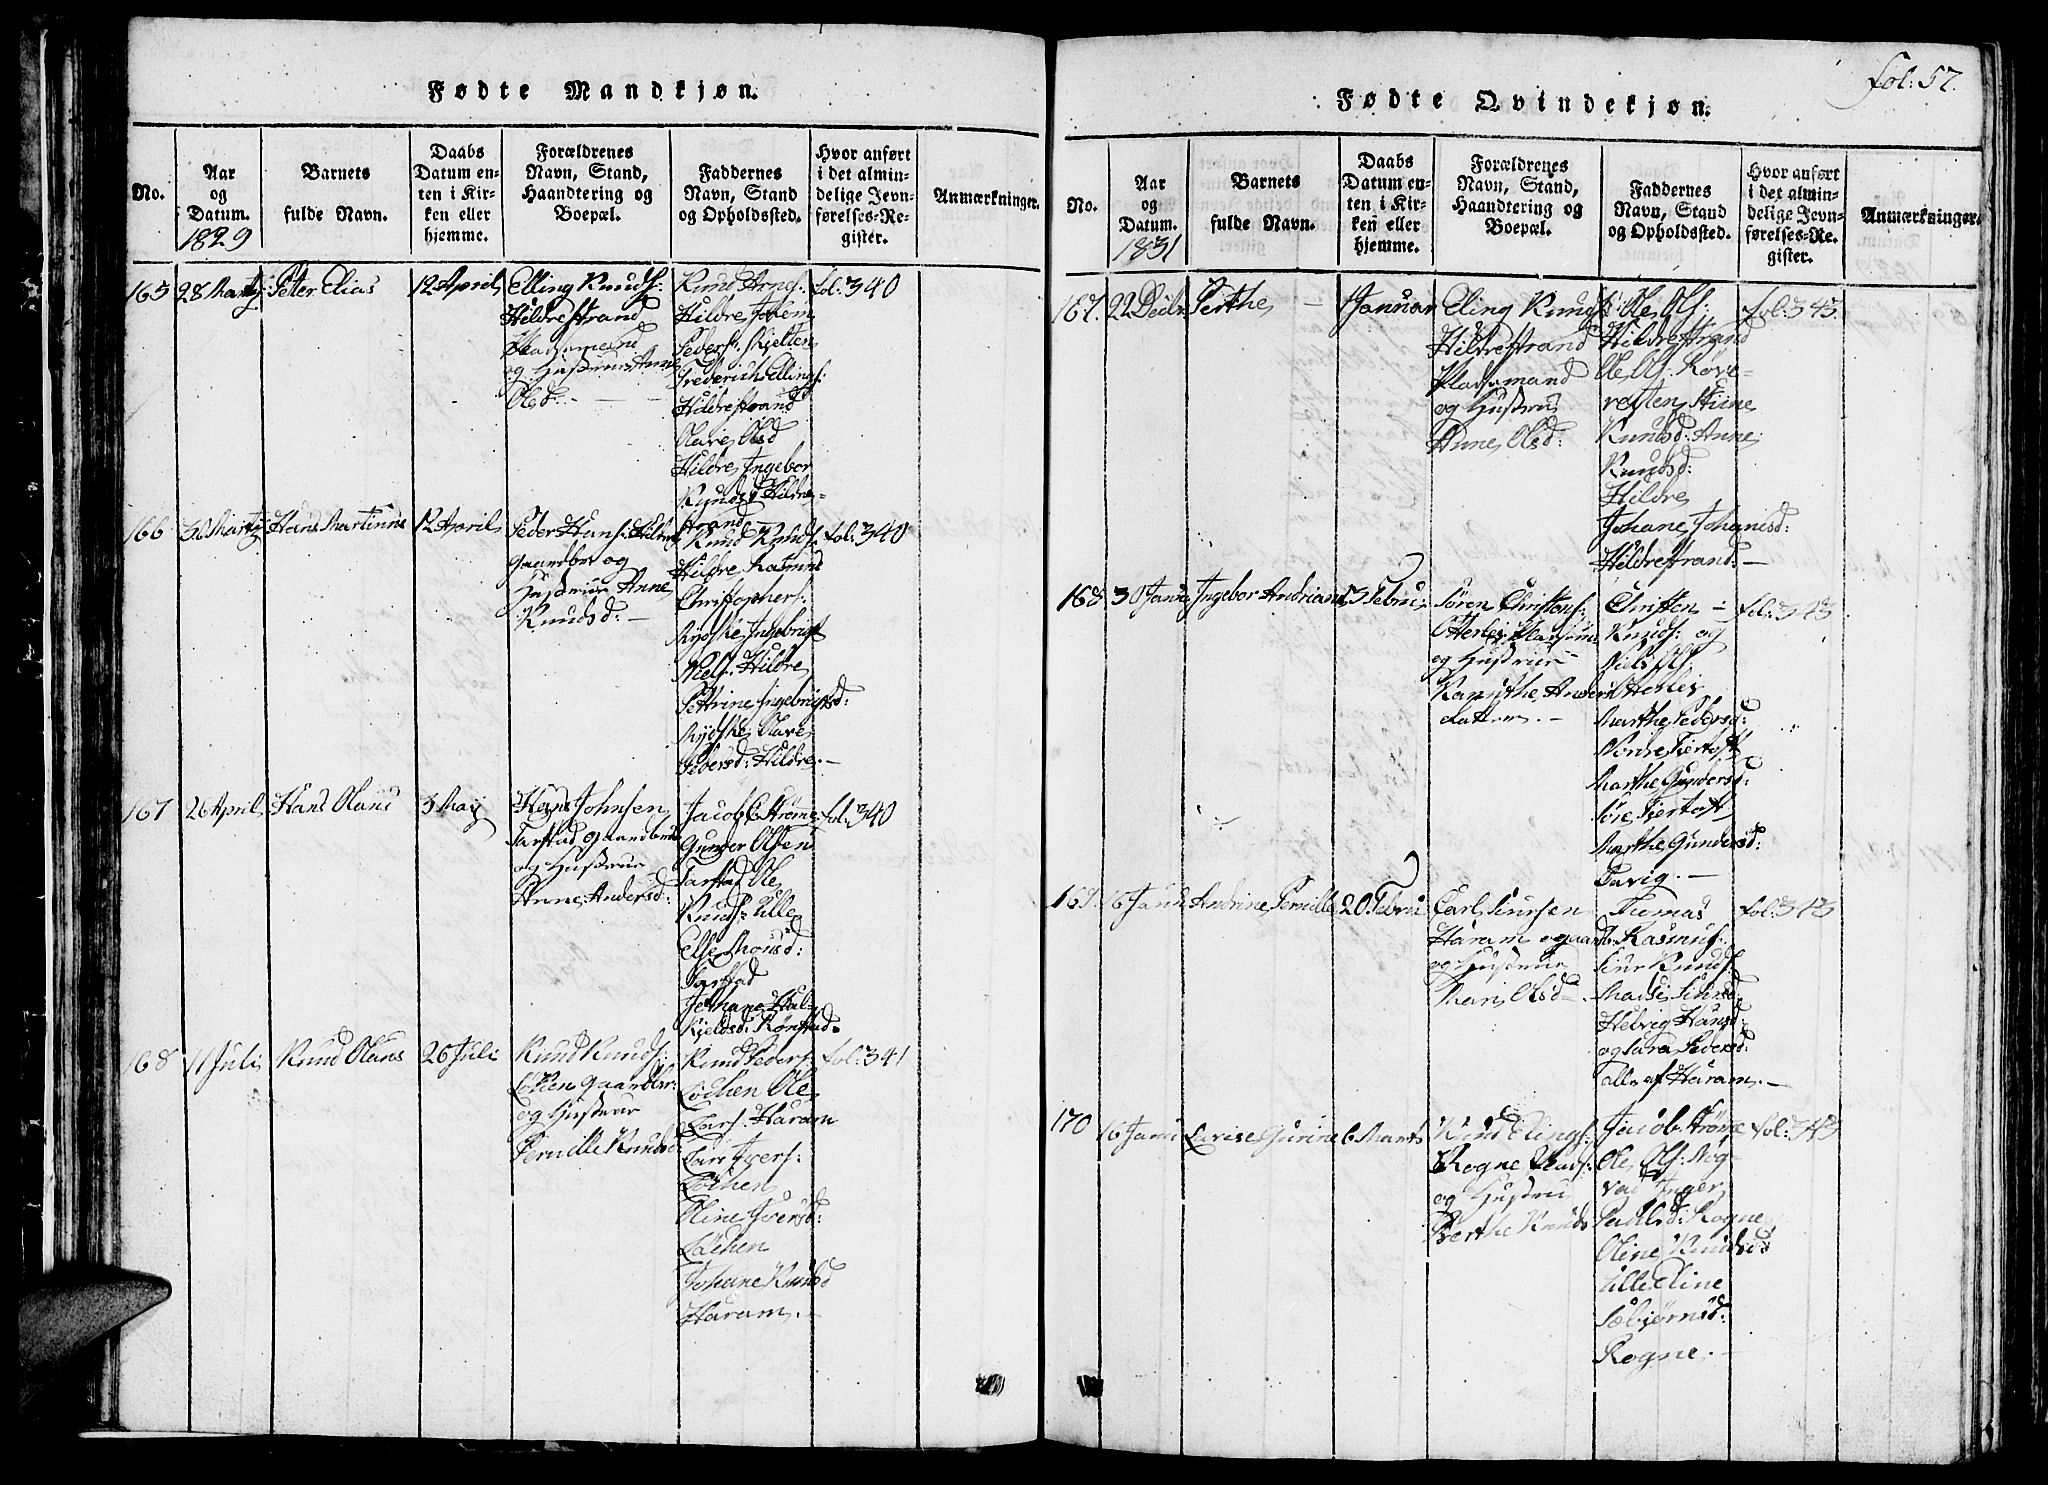 Fødte Mandkjøn.
No.
Aar
og
Datum.
1829
Barnets
fulde Navn.
Daabs
Datum en-
ten i Kir-
ken eller
hjemme.
Forældrenes
Navn, Stand,
Haandtering og
Boepæl.
Faddernes
Navn, Stand
og Opholdssted.
Hvor anført
i det almin-
delige Jevn-
førelses-Re-
gister.
Anmærkninger.
165
28 Martz
Peter Elias
12 April
Elling Knuds:
Hildrestrand
Pladsmand
og Hustrue Anne
Olsd:
Knud Arnes:
Hildre
Peders: Kjelten
Frederich Ellings:
Hildrestrand
Olave Olsd
Hildre Ingebor
Knudsd Hildre-
strand
fol: 340
166
30 Martz
Hans Martinus
12 April
Peder Hans: Hildre
gaardbr og
Hustrue Anne
Knudsd: –
Knud Knuds:
Hildre Rasmus
Christophers:
Rydske Ingebrigt
Niels: Hildre
Pettrine Ingebrigtsd:
Rydske Olave
Pedersd: Hildre. –
fol: 340
167
26 April
Hans Olaus
3 May
Hans Johnsen
Tarstad gaardbrug
og Hustrue
Anne Andersd:
Jacob Strøme
Gunder Olsen
Tarstad Ole
Knuds: Ulle
Else Monsd:
Tarstad
Jethane Hal-
Kjeldsd: Rønstad.
fol: 340
168
11 Juli
Knud Olaus
26 Juli
Knud Knuds:
Løchen gaardbr:
og Hustrue
Pernille Knudsd:
Knud Peders:
Løchen Ole
Lars: Haram
Lars Ivers:
Løchen
Oline Iversd:
Løchen
Johane Knudsd
Haram. –
fol: 341
fol: 57.
Fødte Qvindekjøn.
No.
Aar
og
Datum.
1831
Barnets
fulde Navn.
Daabs
Datum en-
ten i Kir-
ken eller
hjemme.
Forældrenes
Navn, Stand,
Haandtering og
Boepæl.
Faddernes
Navn, Stand
og Opholdssted.
Hvor anført
i det almin-
delige Jevn-
førelses-Re-
gister.
Anmærkninger.
167.
22 Decbr
Berthe –
1 Januar
Eling Knuds:
Hildrestrand
Pladsmand
og Hustrue
Anne Olsd:
Ole Ols:
Hildrestrand
Ole Ols: Røve-
resten Stine
Knudsd: Anne
Knudsd:
Hildre
Johane Johanesd:
Hildrestrand. –
fol: 343.
168
30 Janu
Ingebor Andriane
13 Febru
Søren Christens:
Otterlei
og Hustrue
Karnthe Anders
datter. –
Christen –
Knuds: og
Niels Ols:
Otterlei
Marthe Pedersd:
Nordre Fiertoft
Marthe Gundersd:
Søre Fiertoft
Marthe Gundersd:
Farvig. –
fol: 343
169.
16 Janu
Andrine Pernille
20 Febru
Carl Siursen
Haram gaardb
og Hustrue
Mari Olsd –
Tomas
Rasmus:
Siur Knuds:
Helvig Hansd:
og Sara Pedersd:
alle af Haram. –
fol: 343
170
16 Janu
Lavise Gurine
6 Marts
Knud Elings:
Rogne Plads:
og Hustru
Berthe Knuds
Jacob Strøme
Ole Ols: Nog-
vad Inger
Paulsd: Rogne
Oline Knudsd:
Ulle Eline
Sæbjørnsd:
Rogne. –
fol: 343